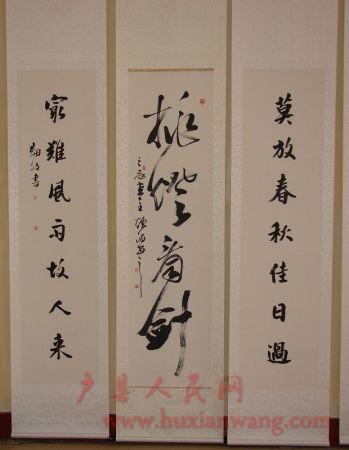 莫放春秋佳日過
挑燈看劍
㝡難風雨故人来
户县人民网
www.huxianwang.com